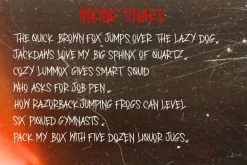 INKING SNARE
THE QUICK BROWN FOX JUMPS OVER THE LAZY DOG.
JACKDAWS LOVE MY BIG SPHINX OF QUARTZ.
COZY LUMMOX GIVES SMART SQUID
WHO ASKS FOR JOB PEN.
HOW RAZORBACK JUMPING FROGS CAN LEVEL
SIX PIQUED GYMNASTS.
PACK MY BOX WITH FIVE DOZEN LIQUOR JUGS.